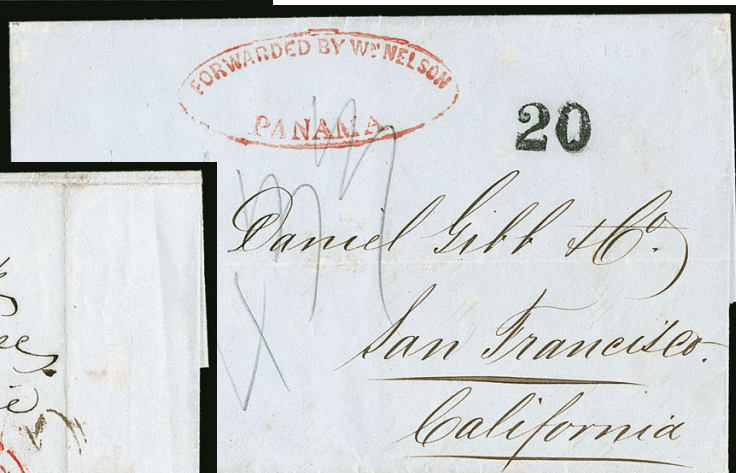 FORWARDED BY Wᴹ NELSON
PANAMA
20
Daniel Gibb & Co.
San Francisco.
California